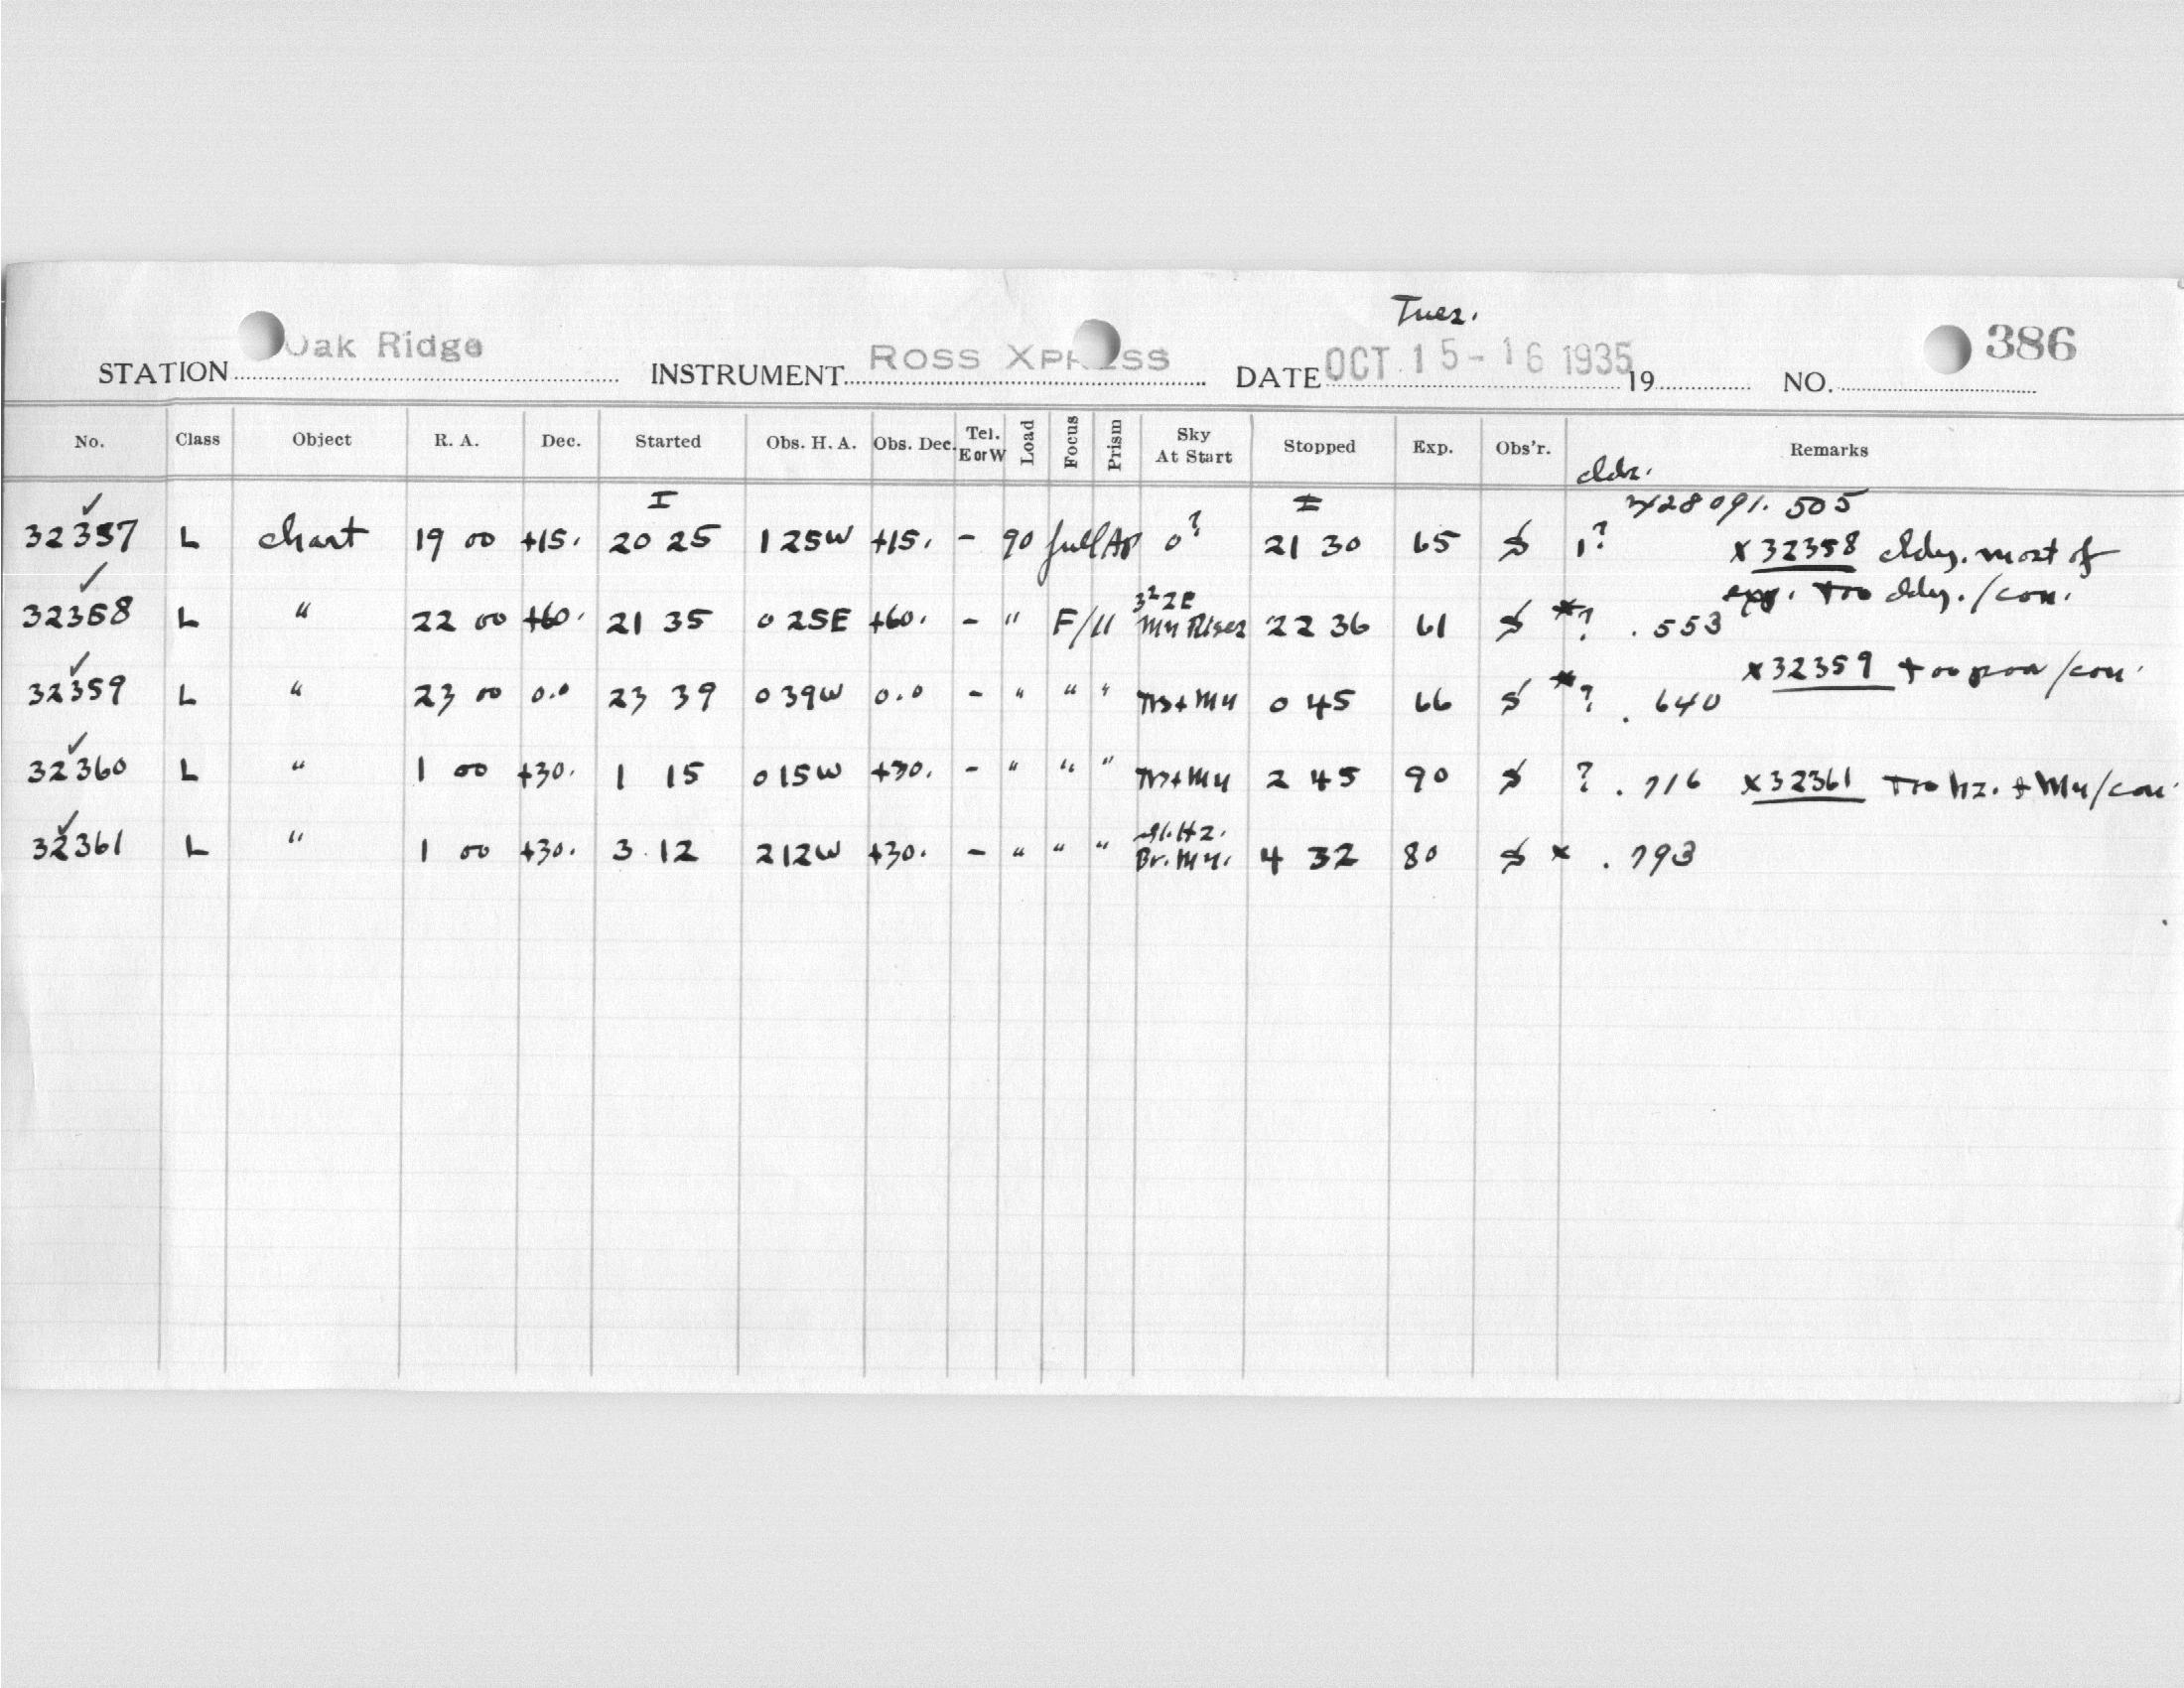 Tues.
STATION Oak Ridge INSTRUMENT ROSS XPRESS DATE OCT 15-16 1935 19 NO. 386
No. Class Object R. A. Dec. Started Obs. H. A. Obs. Dec. Tel. E or W Load Focus Prism Sky At Start Stopped Exp. Obs'r. Remarks
I I 28091.505
32357 L chart 19 00 +15. 20 25 1 25W +15. - 90 full Ap 0? 21 30 65 S 1? x 32358 cldy. most of
exp. too cldy. / con.
32358 L " 22 00 +60. 21 35 0 25E +60. - " F/11 Mn Rises 22 36 61 S *? .553
32359 L " 23 00 0.0 23 39 0 39W 0.0 - " " " 0 45 66 S *? .640 x 32359 too poor / con.
32360 L " 1 00 +30. 1 15 0 15W +30. - " " " 2 45 90 S ? .716 x 32361 Too hz. + Mn / con.
32361 L " 1 00 +30. 3 12 2 12W +30. - " " " Sl. Hz. Br. Mn. 4 32 80 S x .793